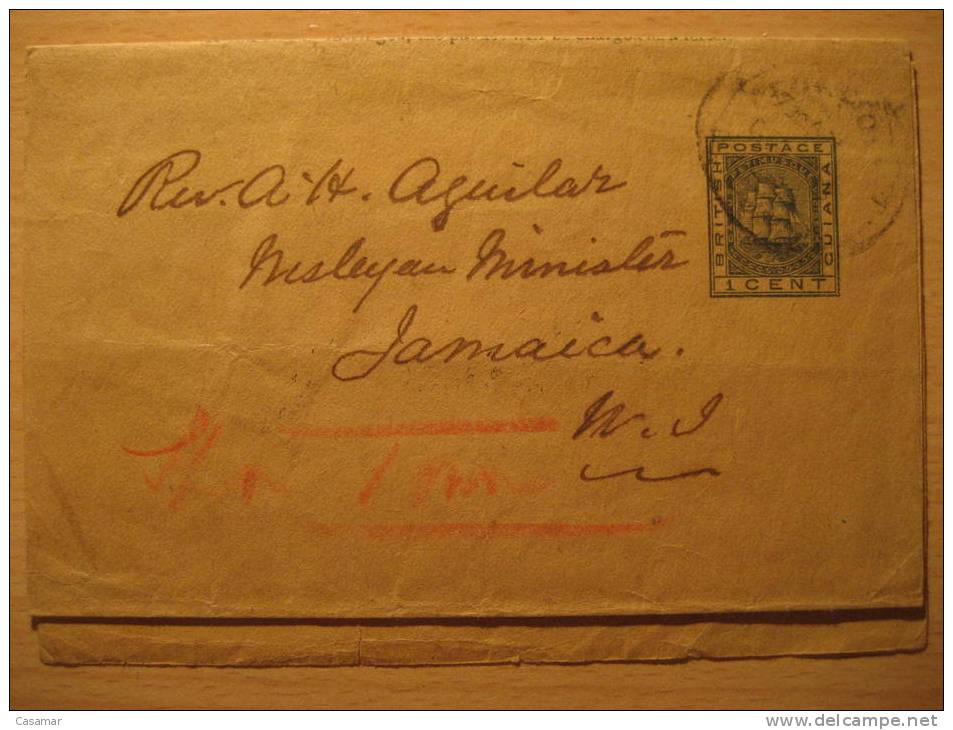 Rev. A. H. Aguilar
Wesleyan Minister
Jamaica.
W. I
BRITISH
POSTAGE
GUIANA
1 CENT
Casamar
www.delcampe.net